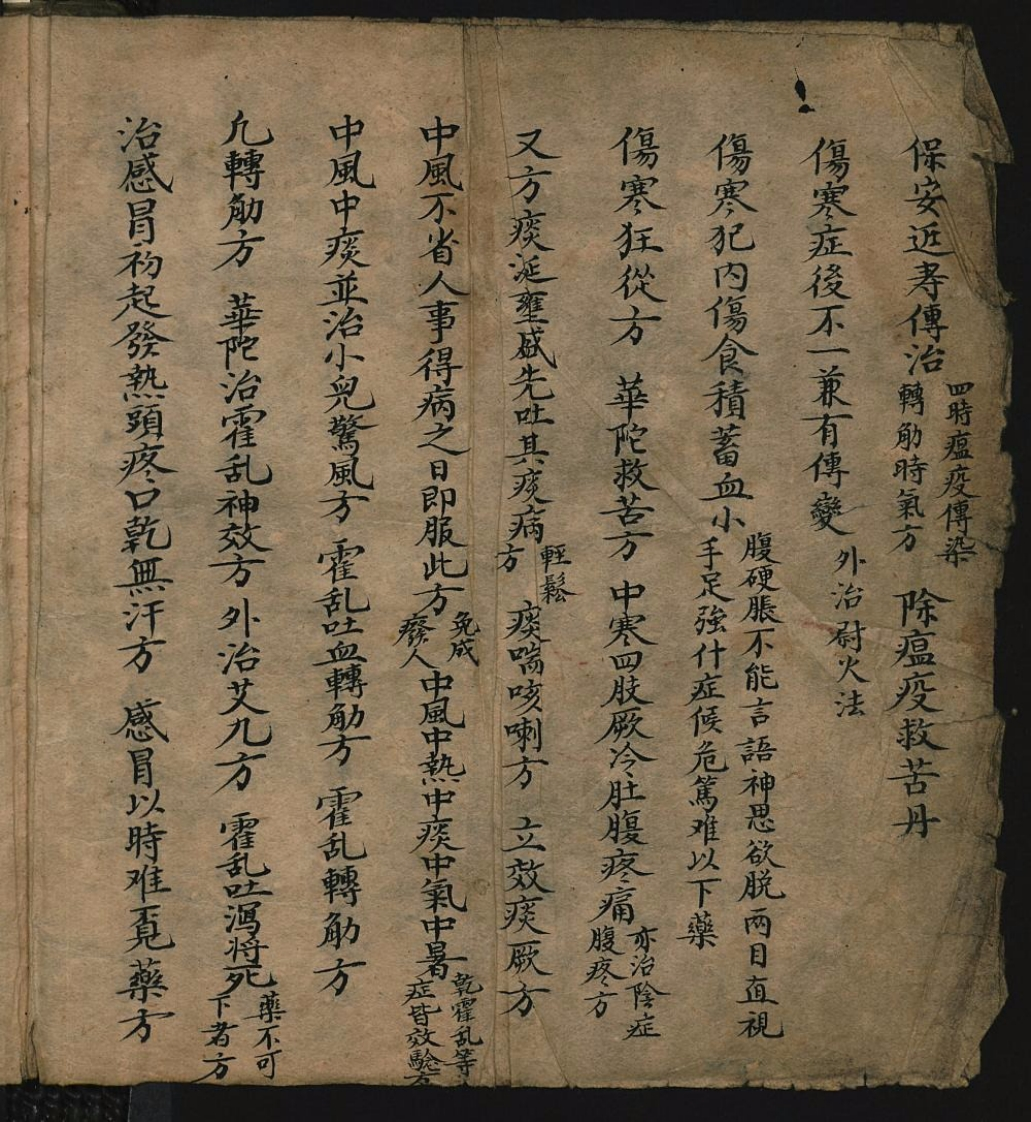 保安延寿傳治四時瘟疫傳染轉觔時氣方　除瘟疫救苦丹
傷寒症後不一兼有傳變　外治尉火法
傷寒犯內傷食積蓄血小腹硬脹不能言語神思欲脫兩目直視手足強什症候危篤难以下藥
傷寒狂從方　華陀救苦方　中寒四肢厥冷肚腹疼痛亦治陰症腹疼方
又方痰涎壅盛先吐其痰病輕鬆方　痰喘咳喇方　立效痰厥方
中風不省人事得病之日即服此方免成癈人　中風中熱中痰中氣中暑乾霍乱等症皆效驗方
中風中痰並治小兒驚風方　霍乱吐血轉觔方　霍乱轉觔方
凢轉觔方　華陀治霍乱神效方　外治艾九方　霍乱吐瀉将死藥不可下者方
治感冒初起發熱頭疼口乾無汗方　感冒以時难覓藥方